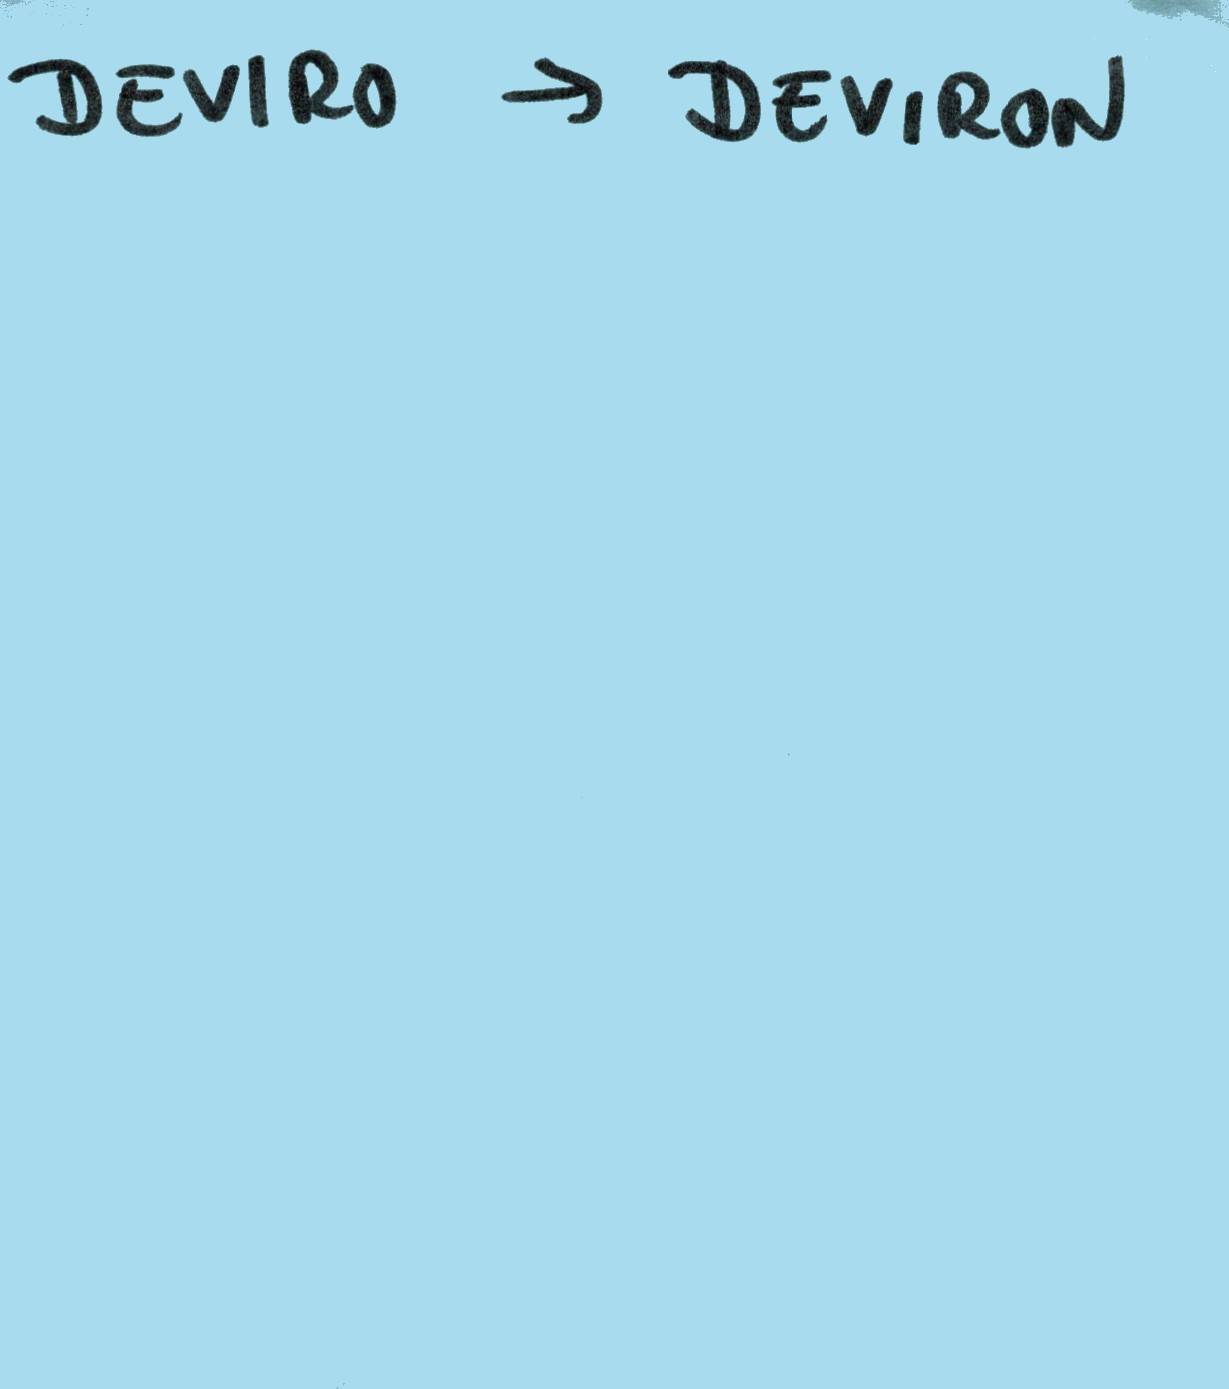 DEVIRO → DEVIRON